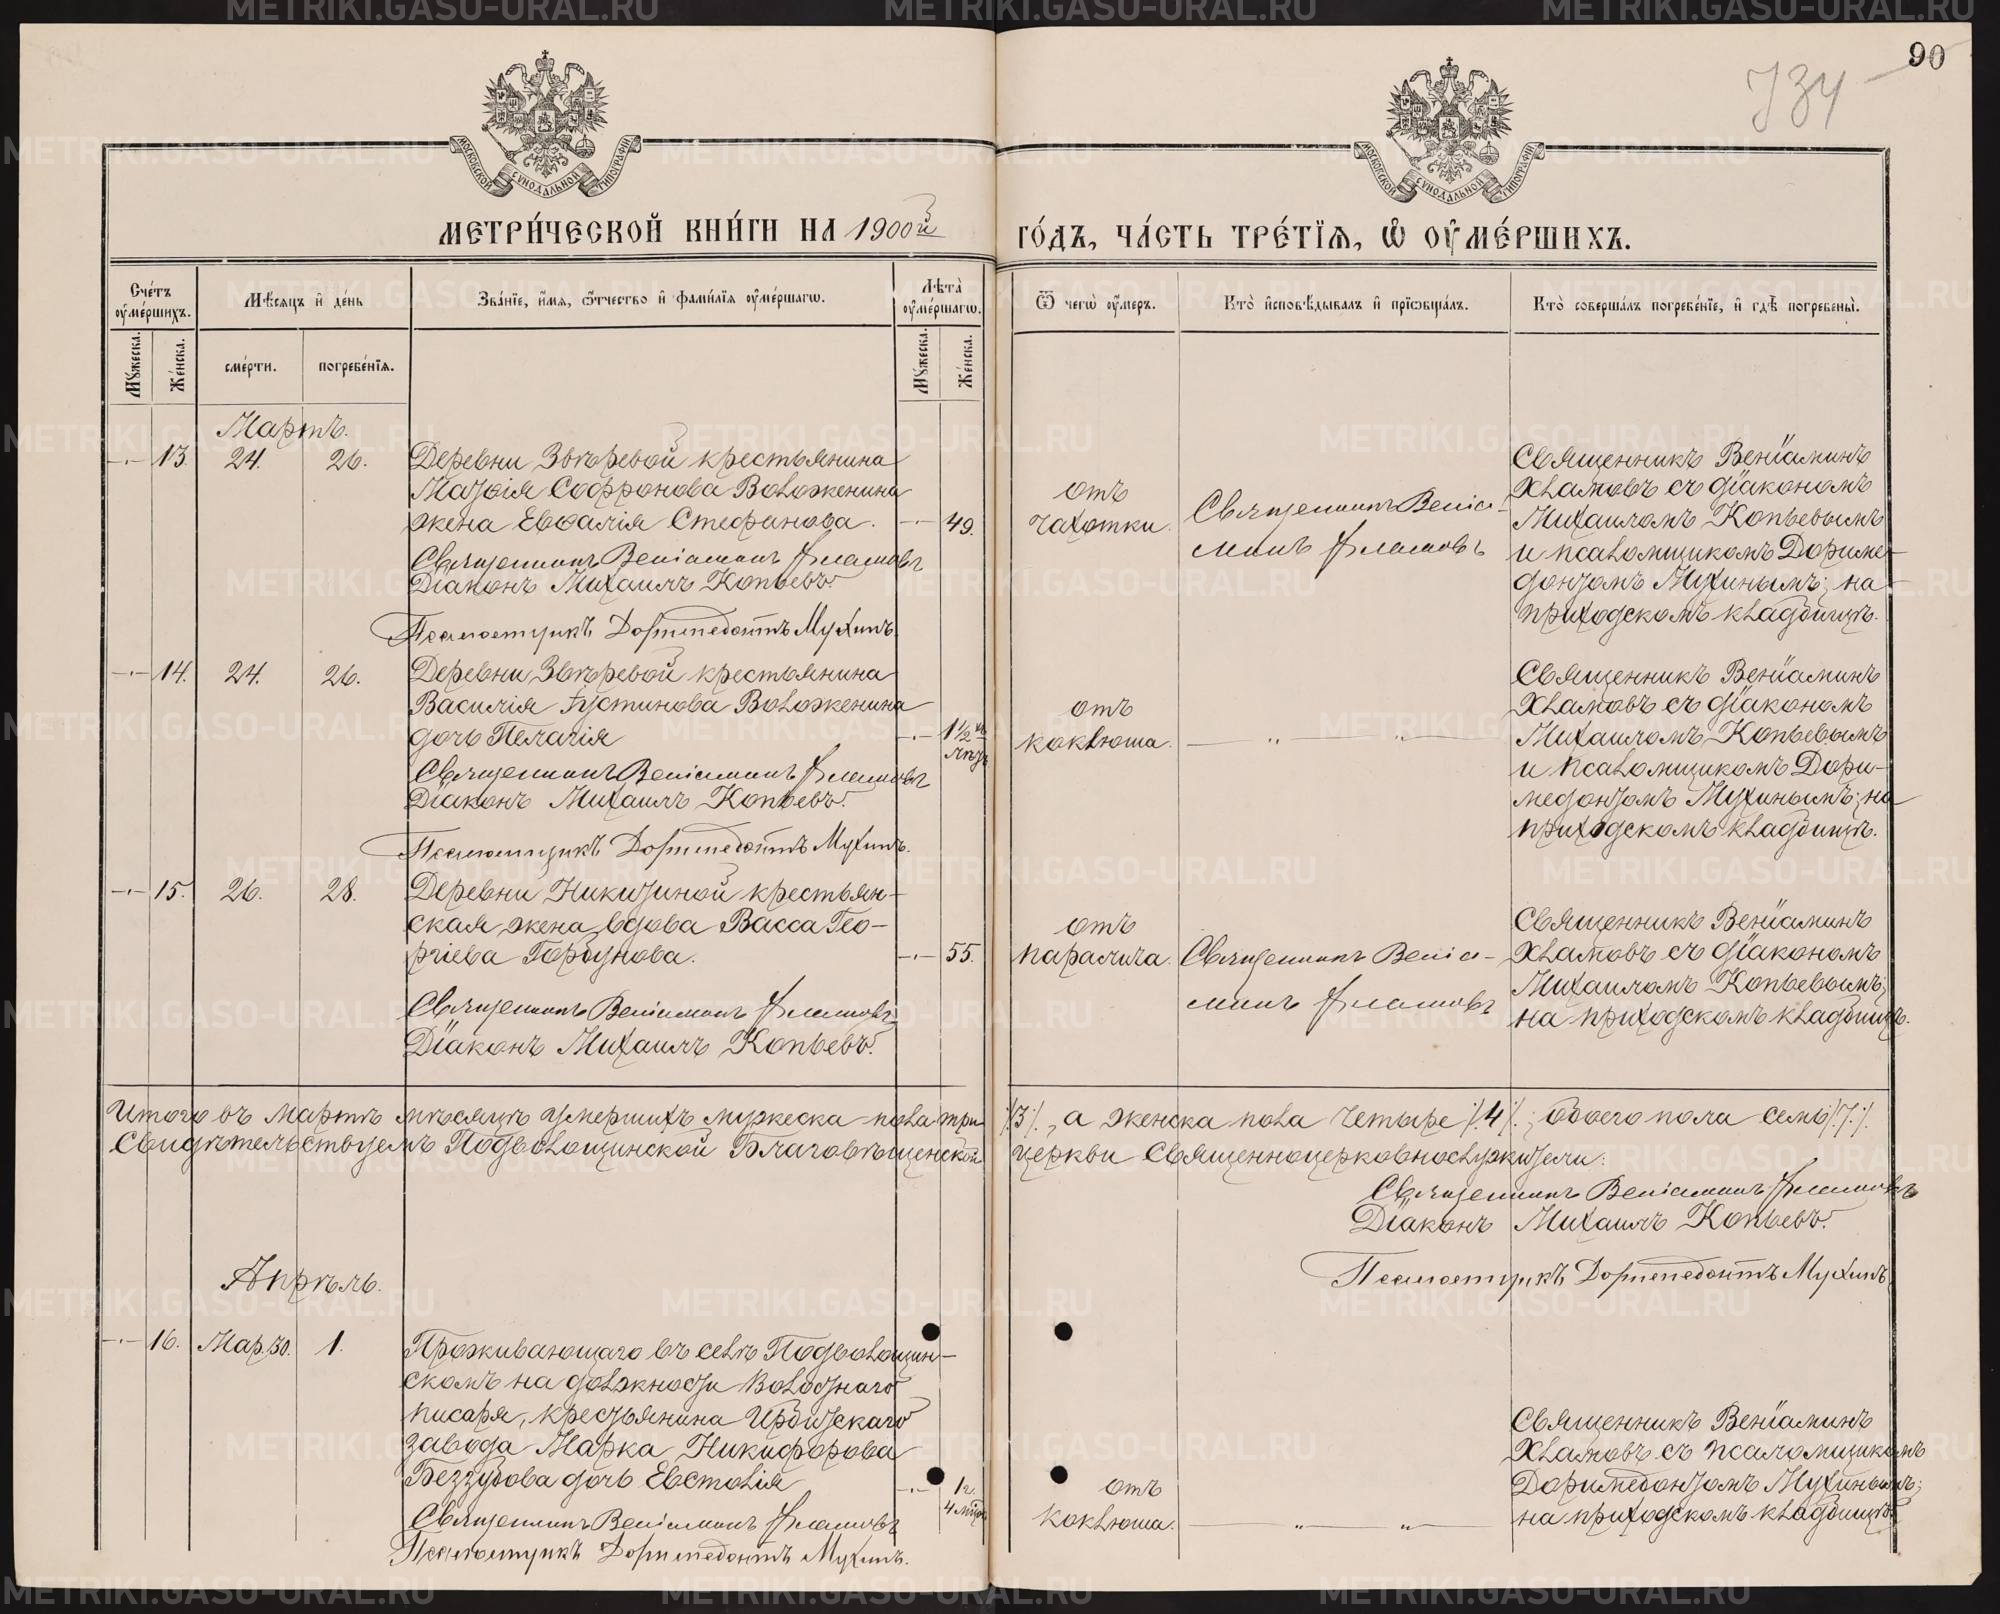 90
734
МОСКОВСКОЙ СѴНОДАЛЬНОЙ ТИПОГРАФІИ
МОСКОВСКОЙ СѴНОДАЛЬНОЙ ТИПОГРАФІИ
МЕТРИ́ЧЕСКОЙ КНИ́ГИ НА 1900й ГО́ДЪ, ЧА́СТЬ ТРЕ́ТЇѦ, Ѡ ОУ҆МЕ́РШИХЪ.
Сче́тъ оу҆ме́ршихъ.
Мѣ́сѧцъ и҆ де́нь
Зва́нїе, и҆́мѧ, ѻ҆́тчество и҆ фами́лїѧ оу҆ме́ршагѡ.
Лѣ́та оу҆ме́ршагѡ.
Ѿ чегѡ̀ оу҆́меръ.
Кто̀ и҆сповѣ́дывалъ и҆ прїѡбща́лъ.
Кто̀ соверша́лъ погребе́нїе, и҆ гдѣ̀ погребены̀.
Мꙋ́жеска.
Же́нска.
сме́рти.
погребе́нїѧ.
Мꙋ́жеска.
Же́нска.
Мартъ.
13. 24. 26.
Деревни Звѣревой крестьянина
Маѳѳія Софронова Воложенина
жена Евѳалія Стефанова. 49.
Священникъ Веніаминъ Хламовъ
Діаконъ Михаилъ Копьевъ.
Псаломщикъ Доримедонтъ Мухинъ.
отъ
чахотки.
Священникъ Веніа-
минъ Хламовъ
Священникъ Веніаминъ
Хламовъ съ діакономъ
Михаиломъ Копьевымъ
и псаломщикомъ Дориме-
донтомъ Мухинымъ; на
приходскомъ кладбищѣ.
14. 24. 26.
Деревни Звѣревой крестьянина
Василія Іустинова Воложенина
дочь Пелагія 1½ м
Священникъ Веніаминъ Хламовъ
Діаконъ Михаилъ Копьевъ.
Псаломщикъ Доримедонтъ Мухинъ.
отъ
коклюша.
Священникъ Веніаминъ
Хламовъ съ діакономъ
Михаиломъ Копьевымъ
и псаломщикомъ Дори-
медонтомъ Мухинымъ; на
приходскомъ кладбищѣ.
15. 26. 28.
Деревни Никитиной крестьян-
ская жена вдова Васса Гео-
ргіева Горбунова. 55.
Священникъ Веніаминъ Хламовъ
Діаконъ Михаилъ Копьевъ.
отъ
паралича.
Священникъ Веніа-
минъ Хламовъ
Священникъ Веніаминъ
Хламовъ съ діакономъ
Михаиломъ Копьевымъ;
на приходскомъ кладбищѣ.
Итого въ мартѣ мѣсяцѣ умершихъ мужеска пола три /3/., а женска пола четыре /4/.; обоего пола семь /7/.
Свидѣтельствуемъ Подволошинской Благовѣщенской церкви Священноцерковнослужители:
Священникъ Веніаминъ Хламовъ
Діаконъ Михаилъ Копьевъ.
Псаломщикъ Доримедонтъ Мухинъ
Апрѣль.
16. Мар. 30. 1.
Проживающаго въ селѣ Подволошин-
скомъ на должности волостнаго
писаря, крестьянина Ирбитскаго
завода Марка Никифорова
Беззубова дочь Евстолія 1 г.
4 мѣс
Священникъ Веніаминъ Хламовъ
Псаломщикъ Доримедонтъ Мухинъ.
отъ
коклюша.
Священникъ Веніаминъ
Хламовъ съ псаломщикомъ
Доримедонтомъ Мухинымъ;
на приходскомъ кладбищѣ.
METRIKI.GASO-URAL.RU